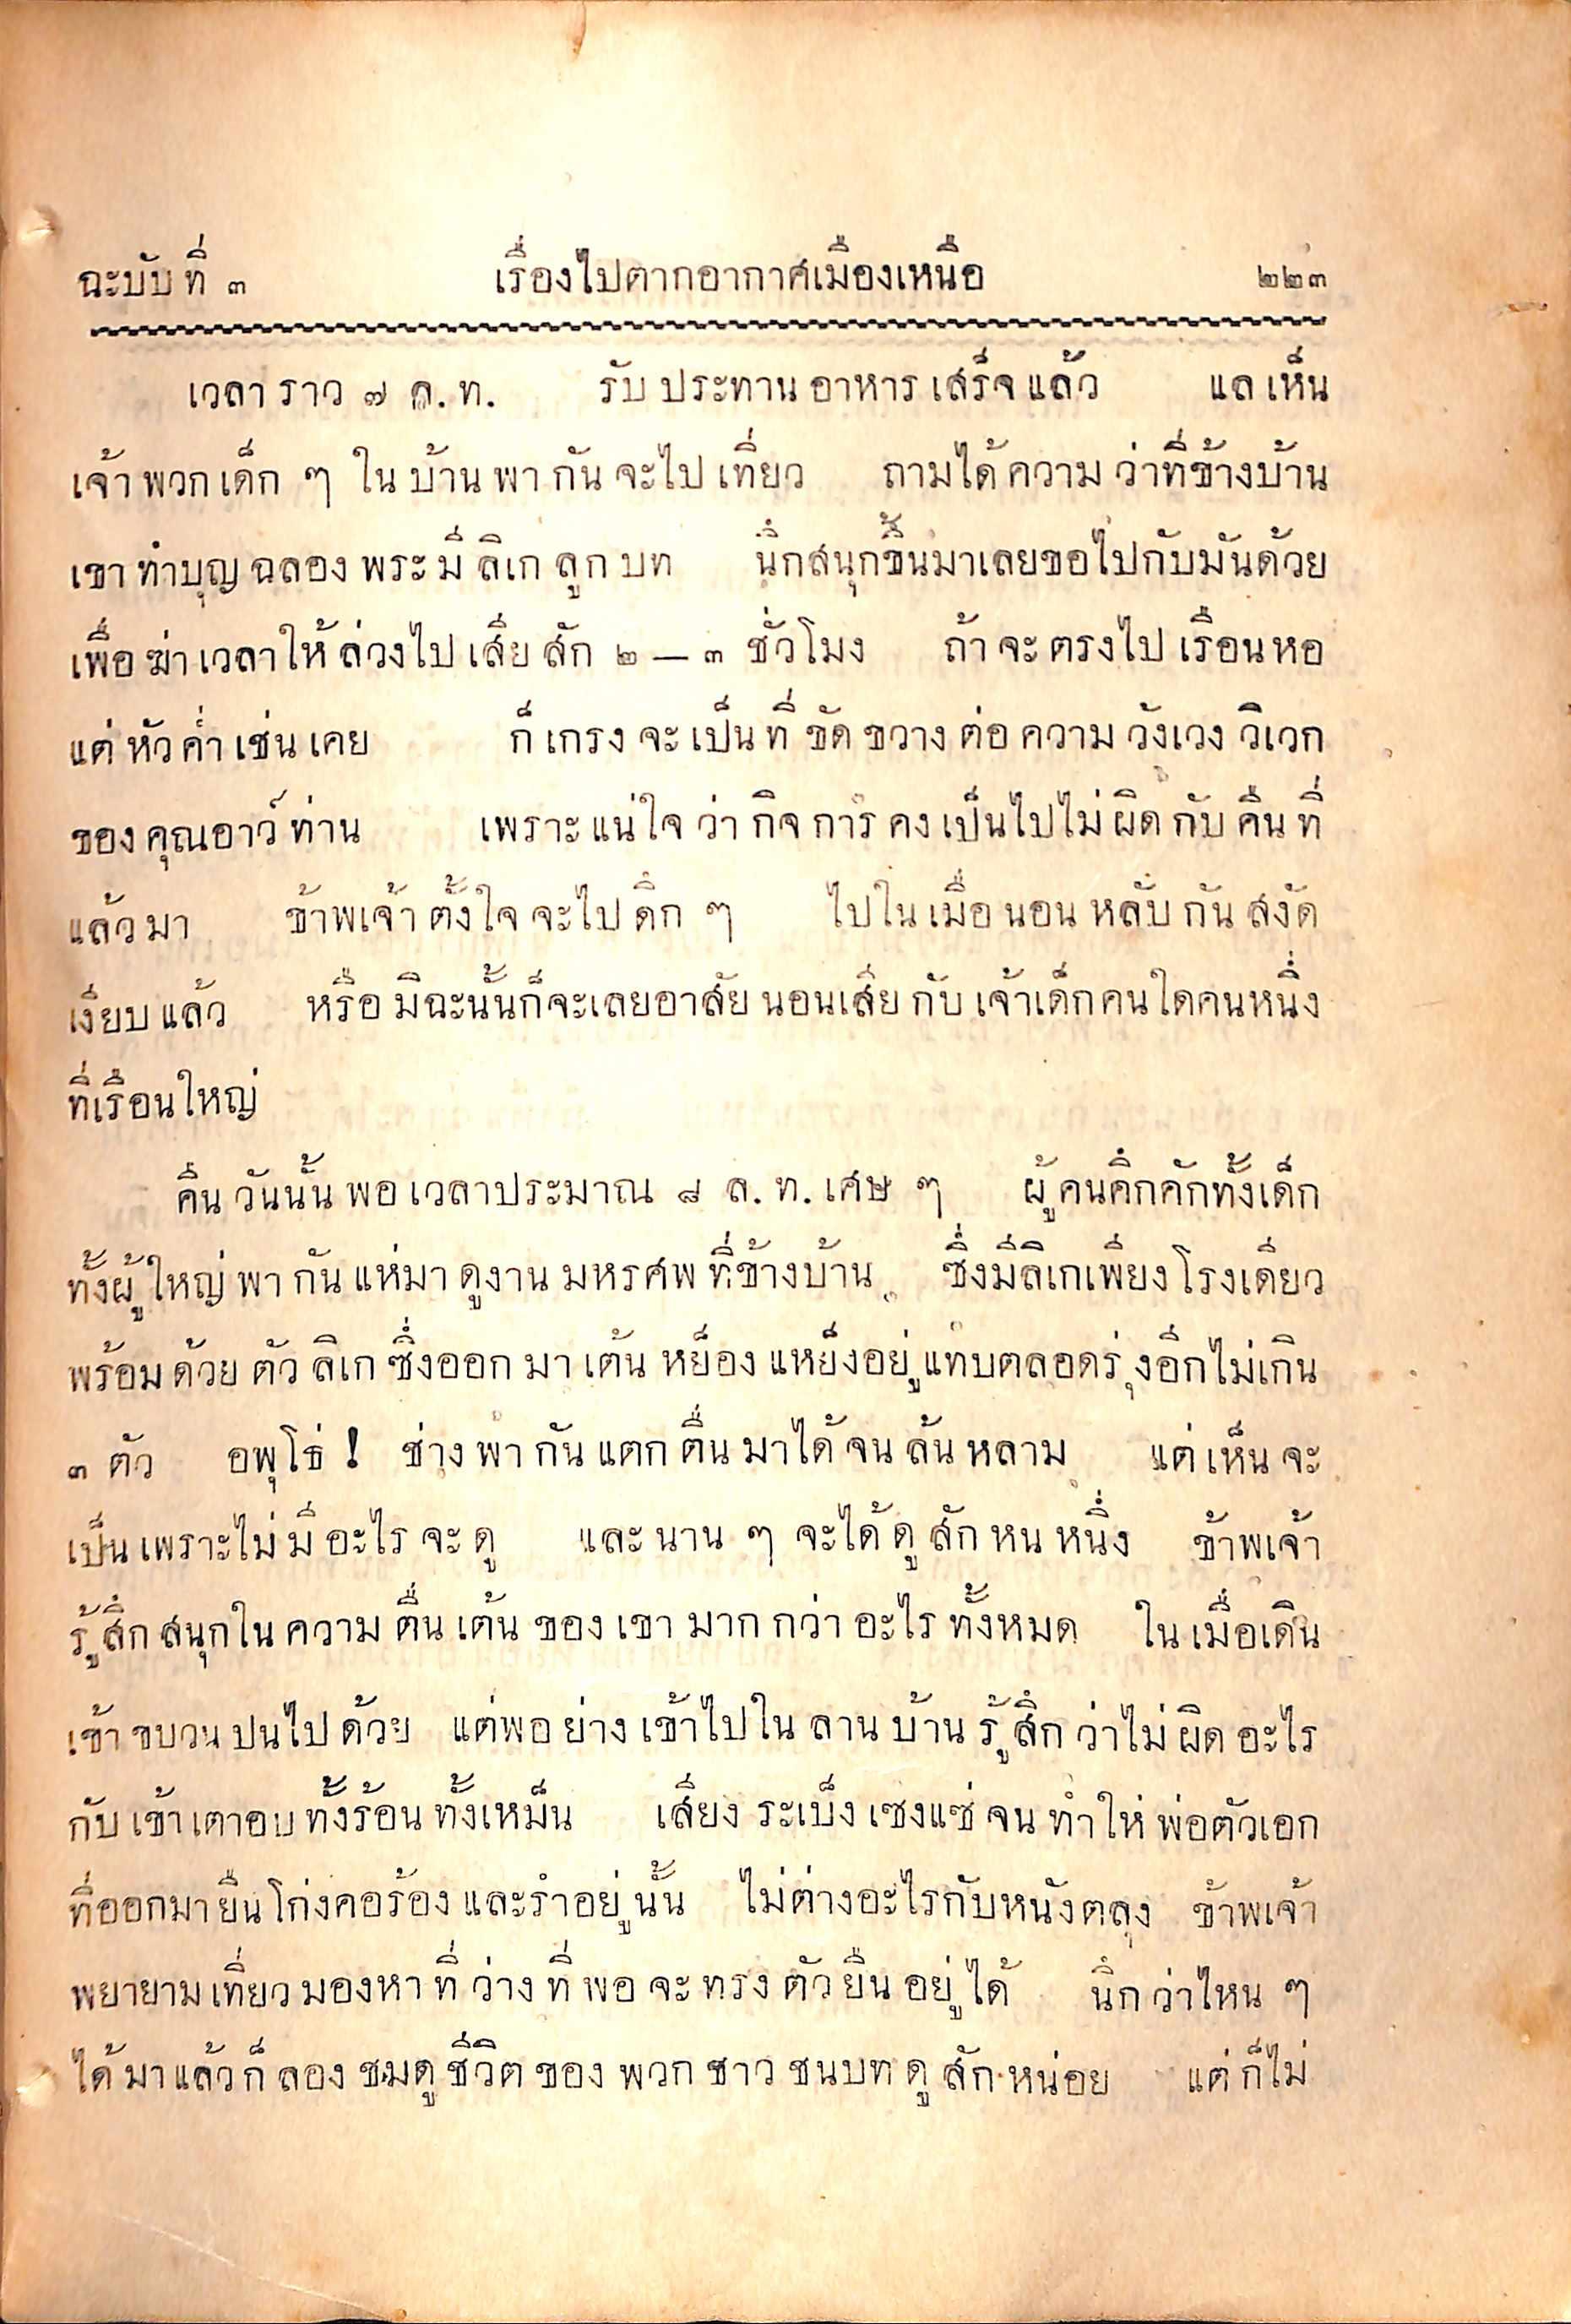 ฉะบับที่ ๓ เรื่องไปตากอากาศเมืองเหนือ ๒๒๓
เวลาราว ๗ ล.ท. รับประทานอาหารเสร็จแล้ว แลเห็น
เจ้าพวกเด็ก ๆ ในบ้านพากันจะไปเที่ยว ถามได้ความว่าที่ข้างบ้าน
เขาทำบุญฉลองพระมีลิเกลูกบท นึกสนุกขึ้นมาเลยขอไปกับมันด้วย
เพื่อฆ่าเวลาให้ล่วงไปเสียสัก ๒—๓ ชั่วโมง ถ้าจะตรงไปเรือนหอ
แต่หัวค่ำเช่นเคย ก็เกรงจะเป็นที่ขัดขวางต่อความวังเวงวิเวก
ของคุณอาว์ท่าน เพราะแน่ใจว่ากิจการคงเป็นไปไม่ผิดกับคืนที่
แล้วมา ข้าพเจ้าตั้งใจจะไปดึก ๆ ไปในเมื่อนอนหลับกันสงัด
เงียบแล้ว หรือมิฉะนั้นก็จะเลยอาสัยนอนเสียกับเจ้าเด็กคนใดคนหนึ่ง
ที่เรือนใหญ่
คืนวันนั้นพอเวลาประมาณ ๘ ล.ท.เศษ ๆ ผู้คนคึกคักทั้งเด็ก
ทั้งผู้ใหญ่พากันแห่มาดูงานมหรศพที่ข้างบ้าน ซึ่งมีลิเกเพียงโรงเดียว
พร้อมด้วยตัวลิเกซึ่งออกมาเต้นหย็องแหย็งอยู่แทบตลอดรุ่งอีกไม่เกิน
๓ ตัว อพุโธ่! ช่างพากันแตกตื่นมาได้จนล้นหลาม แต่เห็นจะ
เป็นเพราะไม่มีอะไรจะดู และนาน ๆ จะได้ดูสักหนหนึ่ง ข้าพเจ้า
รู้สึกสนุกในความตื่นเต้นของเขามากกว่าอะไรทั้งหมด ในเมื่อเดิน
เข้าขบวนปนไปด้วย แต่พอย่างเข้าไปในลานบ้านรู้สึกว่าไม่ผิดอะไร
กับเข้าเตาอบทั้งร้อนทั้งเหม็น เสียงระเบ็งเซงแซ่จนทำให่พ่อตัวเอก
ที่ออกมายืนโก่งคอร้องและรำอยู่นั้น ไม่ต่างอะไรกับหนังตลุง ข้าพเจ้า
พยายามเที่ยวมองหาที่ว่างที่พอจะทรงตัวยืนอยู่ได้ นึกว่าไหน ๆ
ได้มาแล้วก็ลองชมดูชีวิตของพวกชาวชนบทดูสักหน่อย แต่ก็ไม่